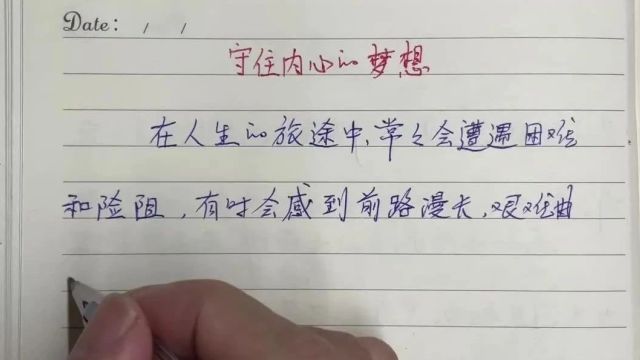 Date: / /
守住内心的梦想
在人生的旅途中,常々会遭遇困难
和险阻,有时会感到前路漫长,艰难曲